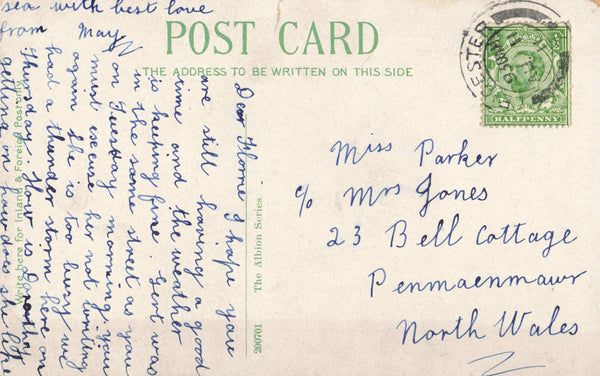 POST CARD
THE ADDRESS TO BE WRITTEN ON THIS SIDE
Write here for Inland & Foreign Postage only
200701 The Albion Series
HALFPENNY
Dear Florrie I hope you
are still having a good
time and the weather
is keeping fine. Gert was
in the same street as you
on Tuesday morning, you
must excuse her not writing
again she is too busy we
had a thunder storm here on
Thursday. How is Dorothy
getting on how does she like
sea with best love
from May
Miss Parker
c/o Mrs Jones
23 Bell Cottage
Penmaenmawr
North Wales